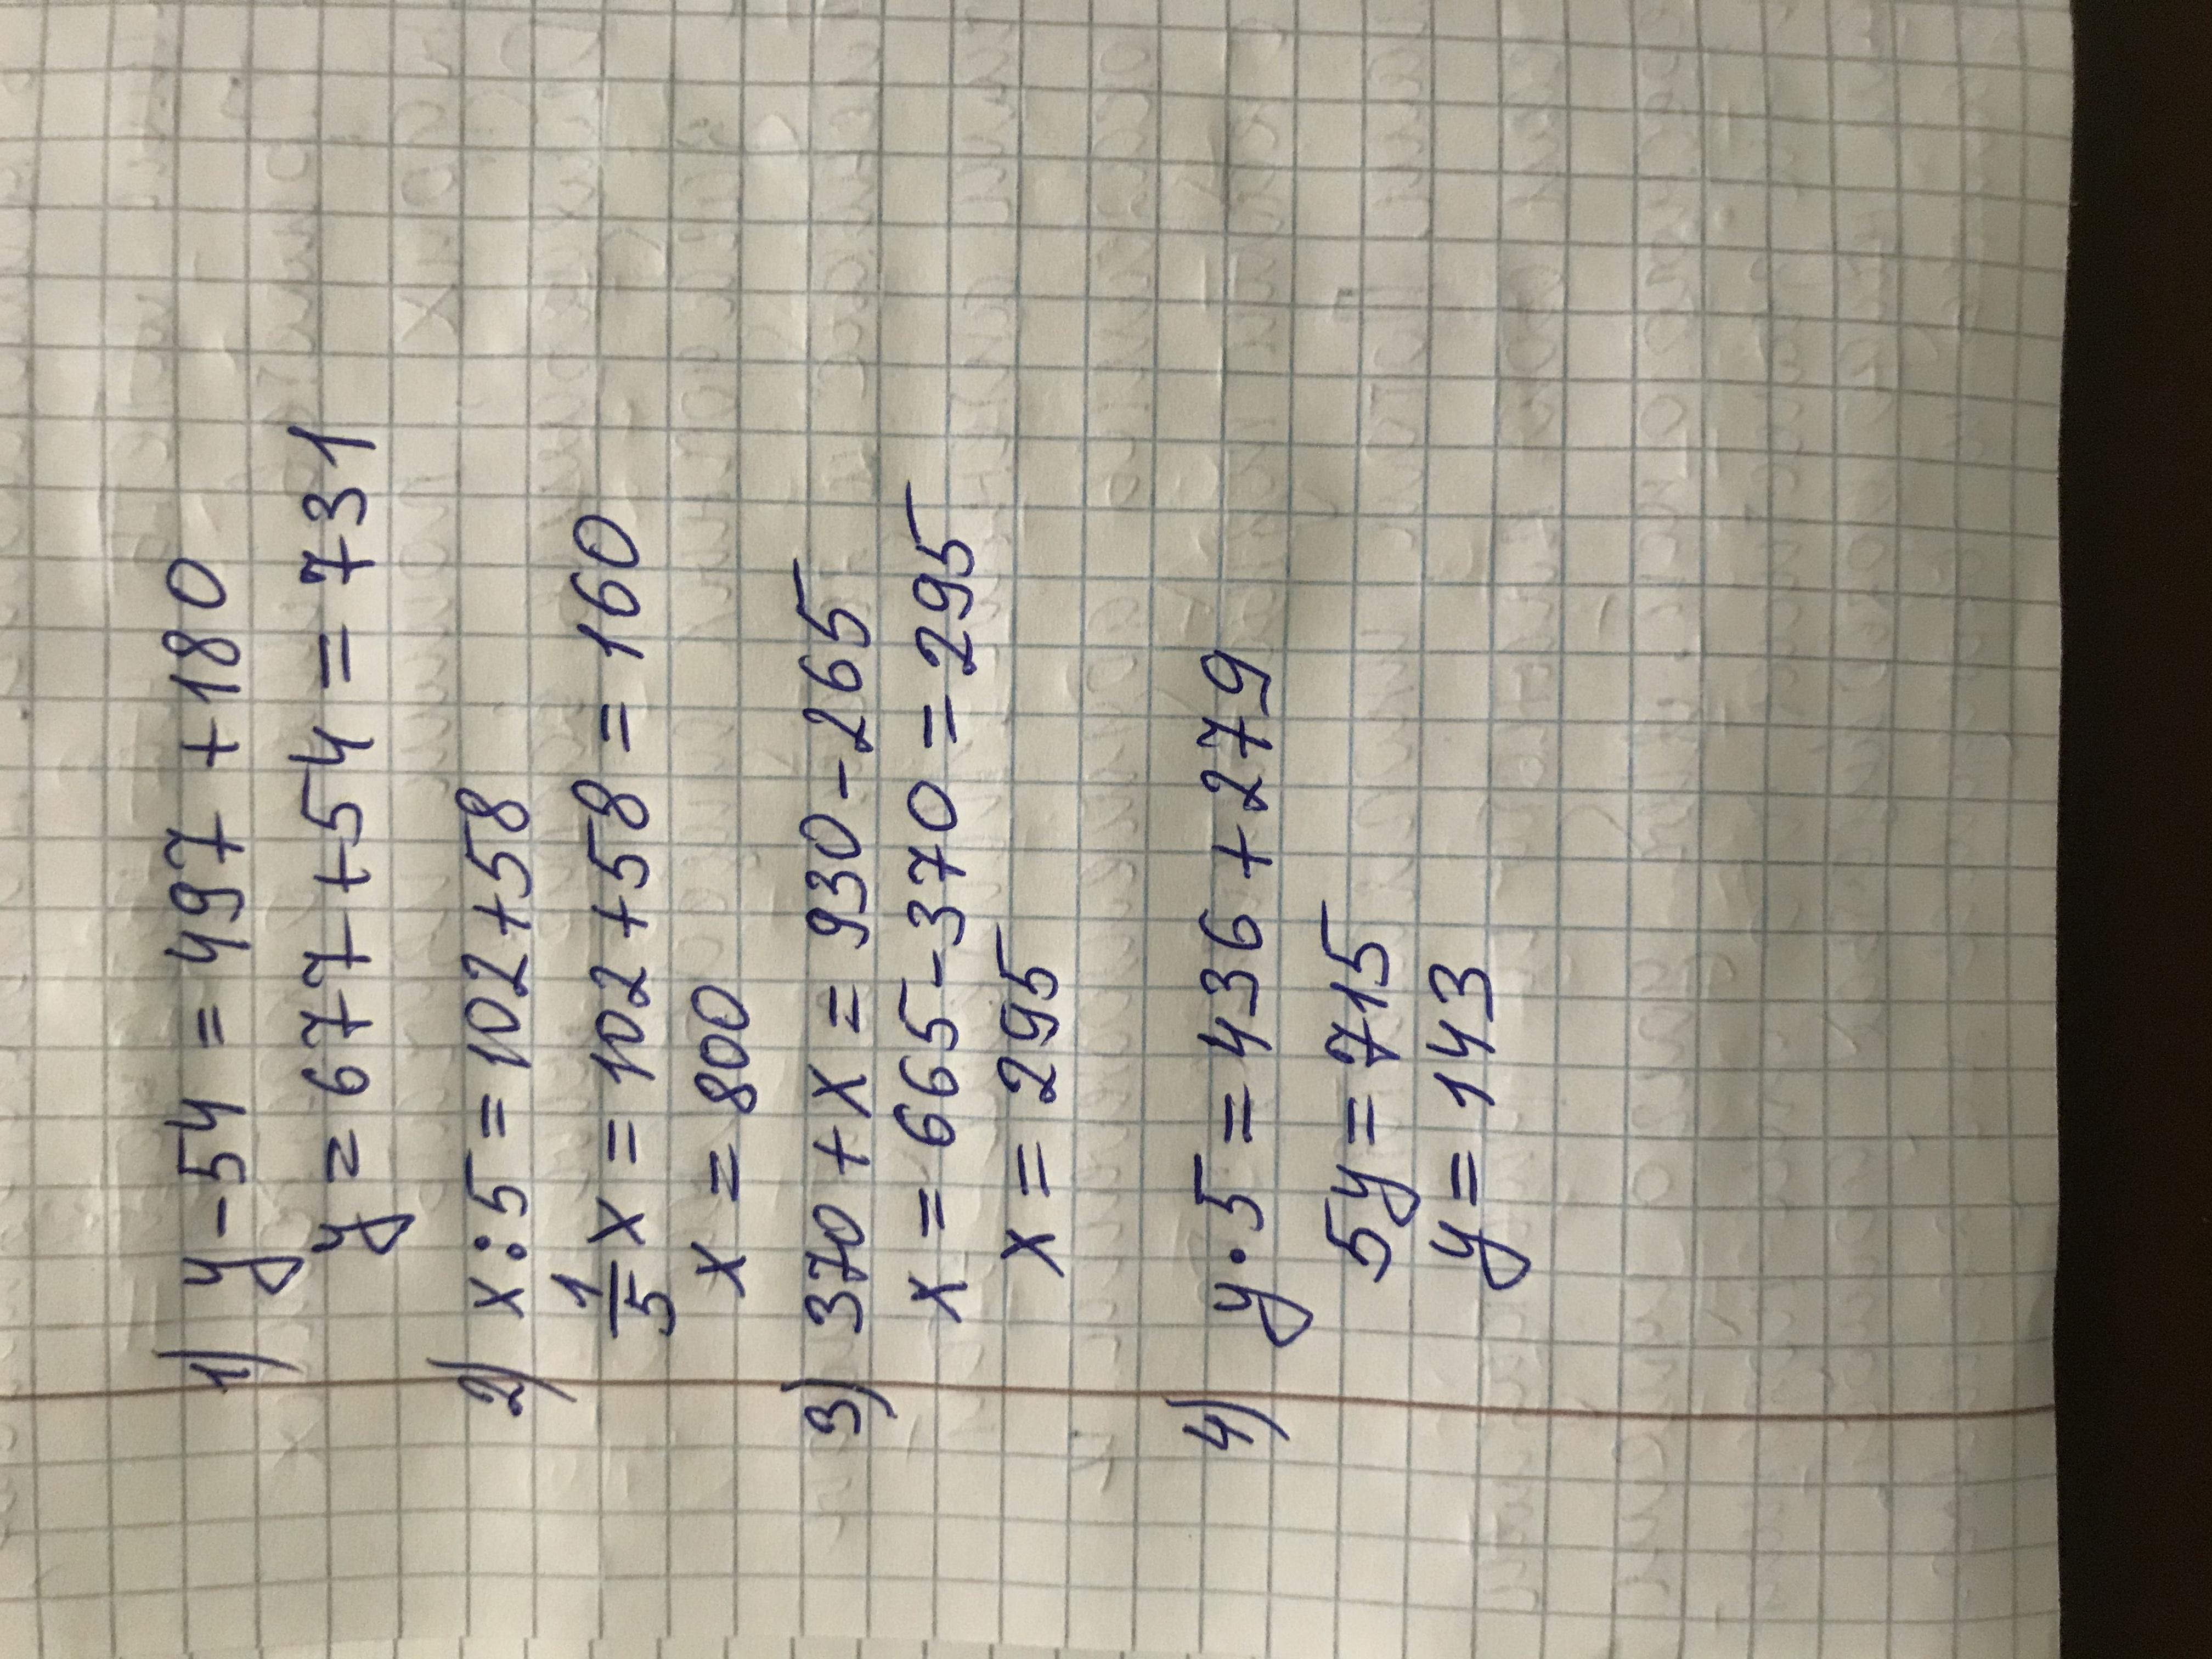 1) y - 54 = 497 + 180
y = 677 + 54 = 731
2) x : 5 = 102 + 58
1/5 x = 102 + 58 = 160
x = 800
3) 370 + x = 930 - 265
x = 665 - 370 = 295
x = 295
4) y · 5 = 436 + 279
5y = 715
y = 143